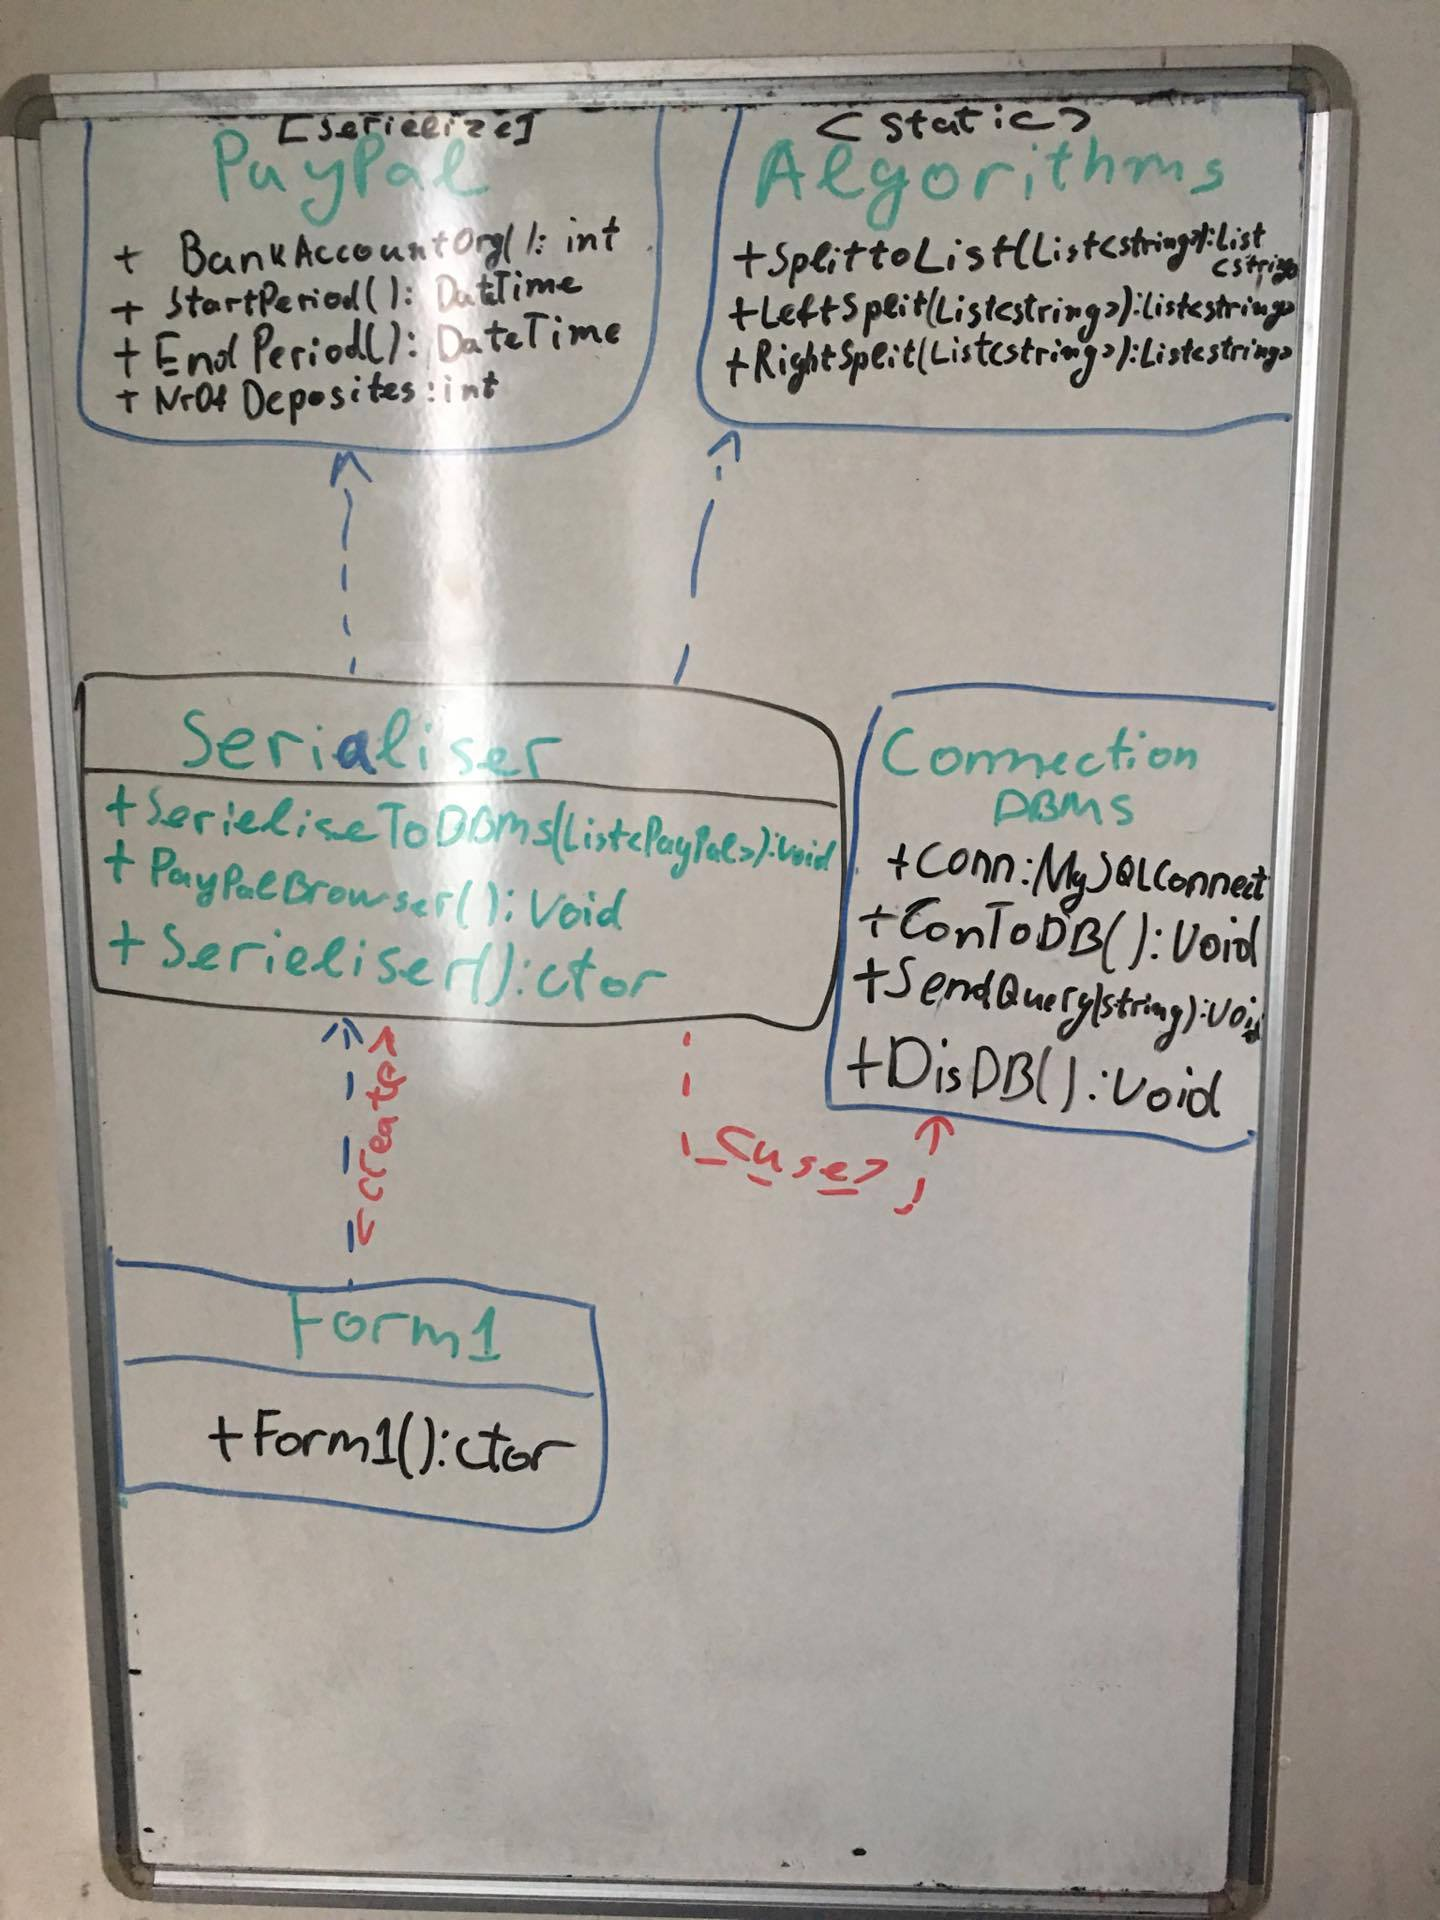 [serielize]
PayPal
+ BankAccountOrg(): int
+ StartPeriod(): DateTime
+ EndPeriod(): DateTime
+ NrOf Deposites: int
<static>
Algorithms
+SplittoList(List<string>):List
<string>
+LeftSplit(List<string>):List<string>
+RightSplit(List<string>):List<string>
Serialiser
+SerieliseToDBms(List<PayPal>):Void
+ PayPalBrowser(): Void
+ Serieliser():ctor
Connection
DBMS
+Conn:MySQLConnect
+ConToDB():Void
+SendQuery(string):Void
+DisDB():Void
<create>
<use>
Form1
+Form1():ctor